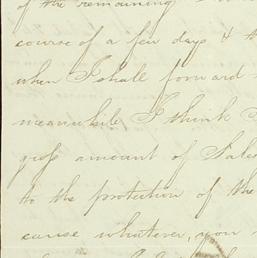 of the remaining
course of a few days & th
when I shall forward
meanwhile I think
gross amount of Sales
to the protection of the
cause whatever, you